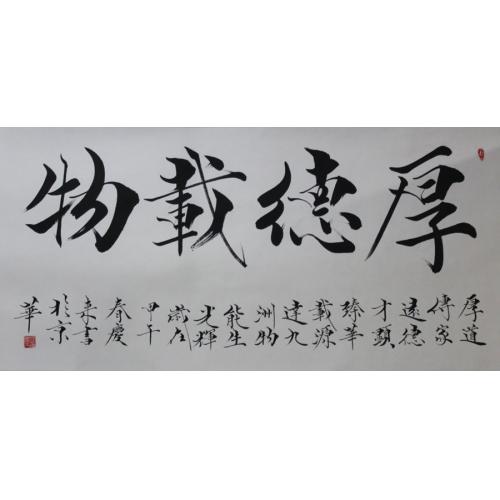 厚德載物
厚道
傳家
遠德
才顯
臻華
載源
達九
洲物
能生
光輝
歲在
甲午
春慶
來書
於京
華